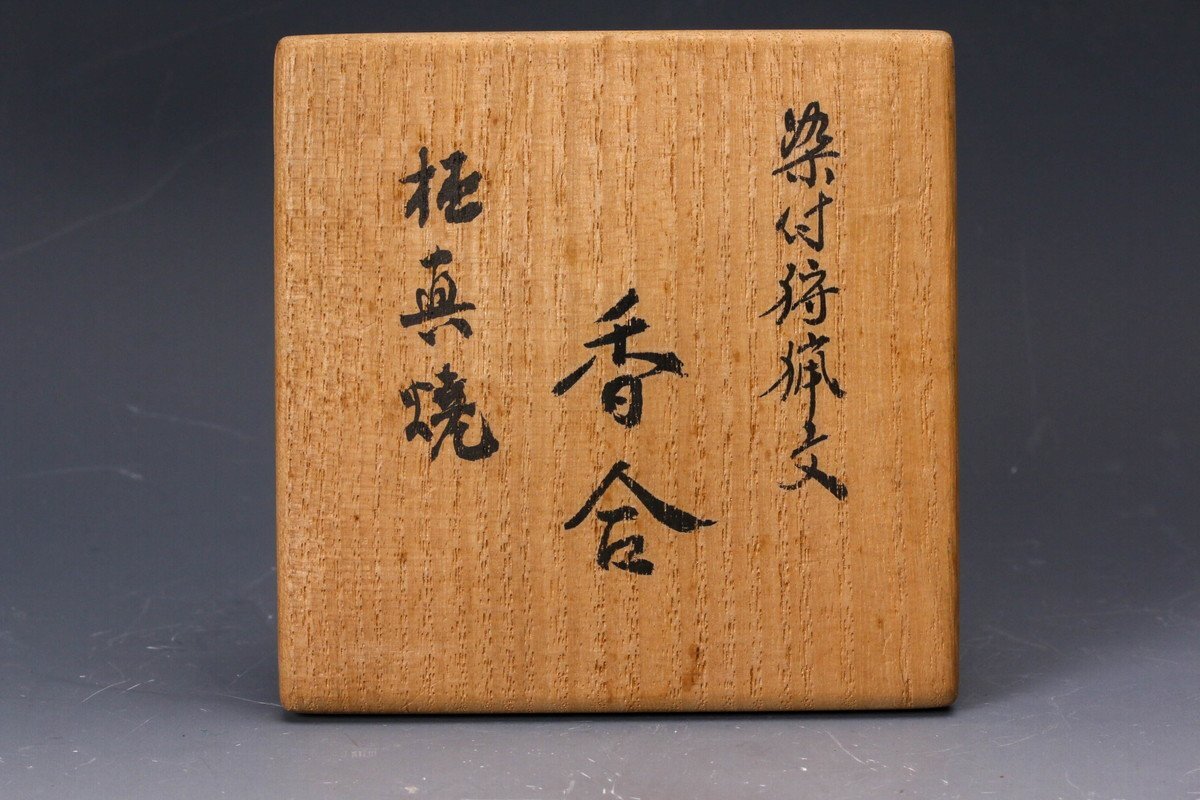 染付狩猟文
香合
極真焼